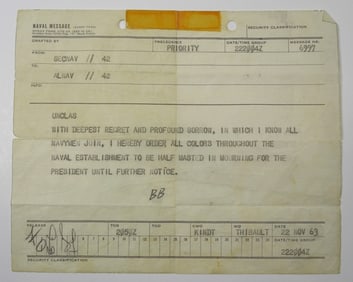 NAVAL MESSAGE
SECURITY CLASSIFICATION
DRAFTED BY PRECEDENCE DATE/TIME GROUP MESSAGE NO.
PRIORITY 222004Z 6997
FROM:
SECNAV // 42
TO:
ALNAV // 42
INFO:
UNCLAS
WITH DEEPEST REGRET AND PROFOUND SORROW, IN WHICH I KNOW ALL
NAVYMEN JOIN, I HEREBY ORDER ALL COLORS THROUGHOUT THE
NAVAL ESTABLISHMENT TO BE HALF MASTED IN MOURNING FOR THE
PRESIDENT UNTIL FURTHER NOTICE.
BB
RELEASE TOR TOD CWO WO DATE
KINDT THIBAULT 22 NOV 63
DATE/TIME GROUP
222004Z
SECURITY CLASSIFICATION